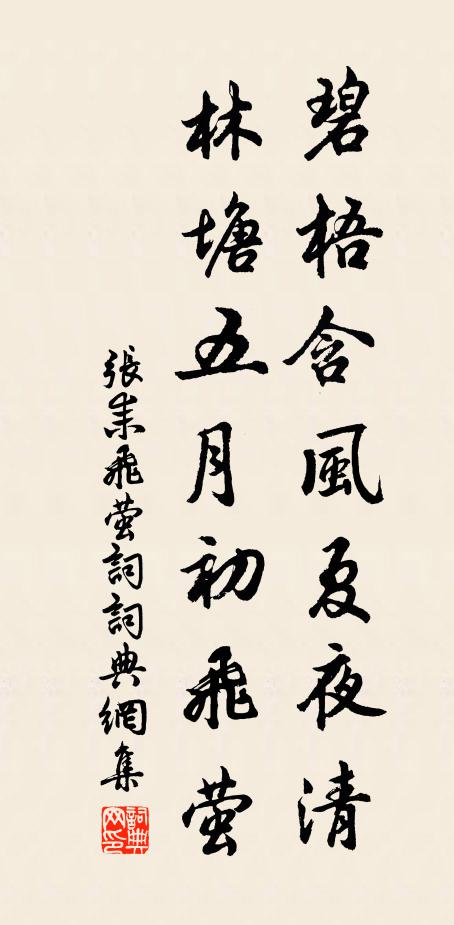 碧梧含風夏夜清
林塘五月初飛螢
張耒飛螢詞詞典網集
詞典
网印